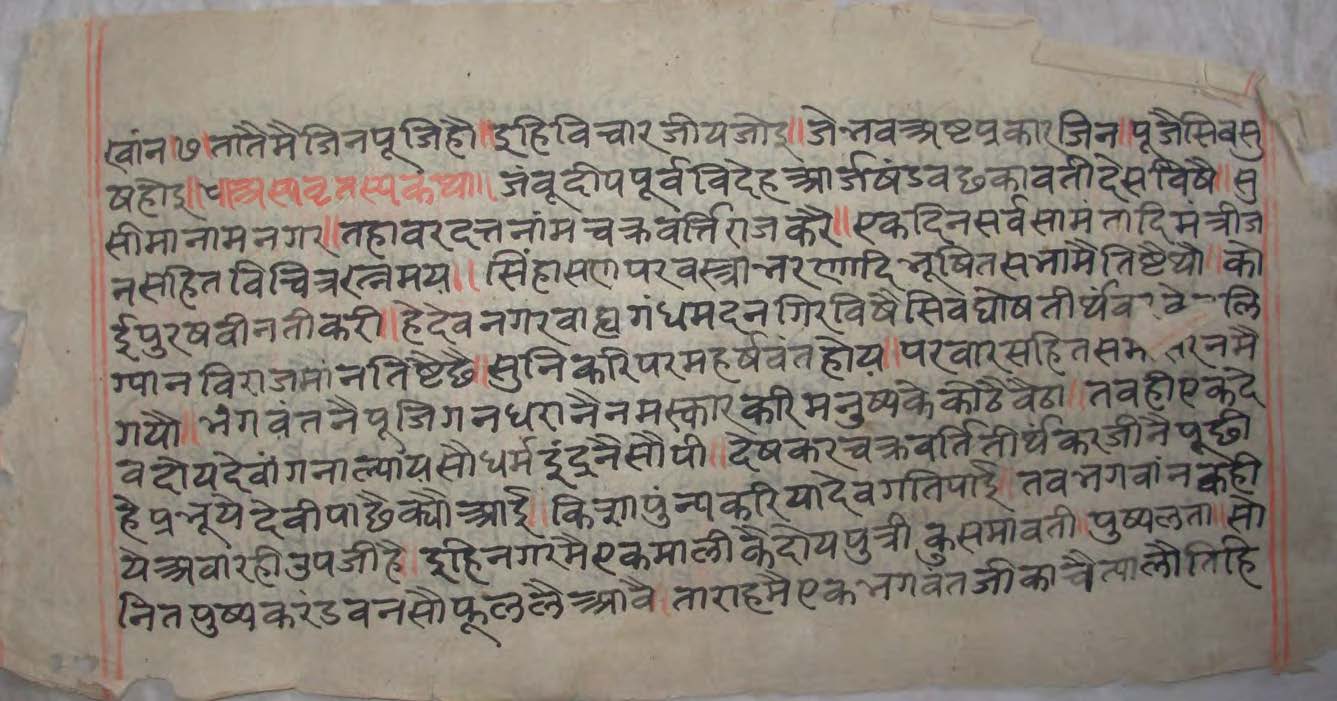 वांन ७ तातैमैजिनपूजिहौ॥इहिविचारजीयजोइ॥जेभवअष्टप्रकारजिन॥पूजैसिवसु
षहोइ॥ जंबूदीपपूर्वविदेहआर्जषंडवछकावतीदेसविषै॥सु
सीमानामनगर॥तहावरदत्तनांमचक्रवर्त्तिराजकरै॥एकदिनसर्वसामंतादिमंत्रीज
नसहितविचित्ररत्नमय॥सिंहासणपरवस्त्राभरणादिभूषितसभामैतिष्टैथौ॥को
ईपुरषवीनतीकरी॥हेदेवनगरवाह्यगंधमदनगिरविषैसिवघोषतीर्थ लि
ग्यानविराजमांनतिष्टैछै॥सुनिकरिपरमहर्षवंतहोय॥परवारसहितसम रनमै
गयौ॥भगवंतनैपूजिगनधरानैनमस्कारकरिमनुष्यकेकोठैवैठा॥तवहीएकदे
वदोयदेवांगनाल्यायसौधर्मइंद्रनैसौपी॥देषकरचक्रवर्तितीर्थकरजीनैपूछी
हेप्रभूयैदेवीपाछैक्यौआई॥किशापुंन्यकरियादेवगतिपाई॥तवभगवांनकही
येअवारहीउपजीहै॥इहिनगरमैएकमालीकैदोयपुत्री कुसमावती॥पुष्पलता॥सो
नितपुष्पकरंडवनसौफूललैआवै॥ताराहमैएकभगवंतजीकाचैत्यालौतिहि